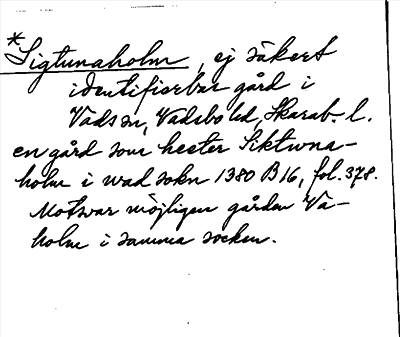 *Sigtunaholm, ej säkert
identifierbar gård i
Vads sn, Vadsbo hd, Skarab. l.
en gård som heeter Siktwna-
holm i wad sokn 1380 B16, fol. 378.
Motsvar möjligen gården Va-
holm i samma socken.